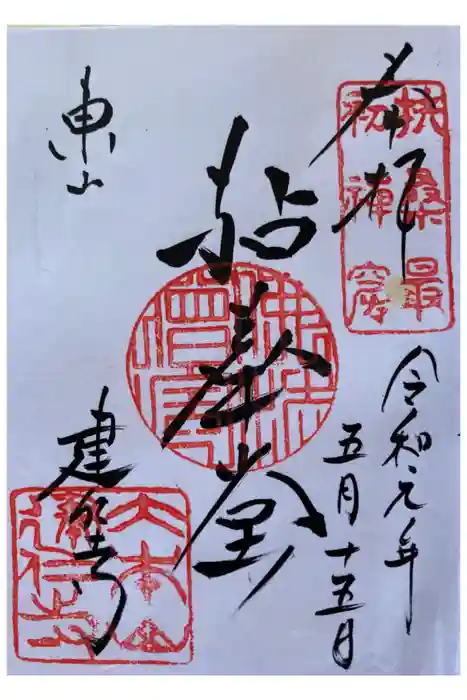 奉拝
扶桑最
初禅窟
令和元年
五月十五日
拈華堂
佛法僧宝
東山
建仁寺
大本山
建仁寺